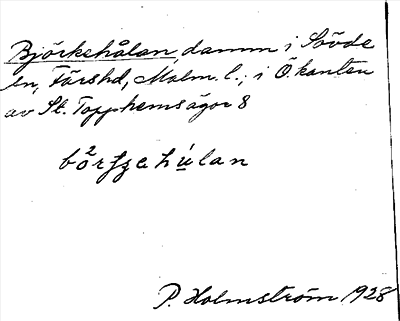 Björkehålan, damm i Sövde
sn, Färshd, Malm. l.; i Ö. kanten
av St. Topphemsägor 8
bö̀rfzehúlan
P. Holmström 1928